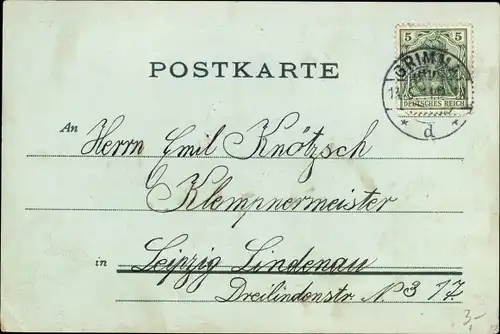 5 5
DEUTSCHES REICH
GRIMMA
* d *
POSTKARTE
An Herrn Emil Knötzsch
Klempnermeister
in Leipzig Lindenau
Dreilindenstr N. 3 17.
3,-